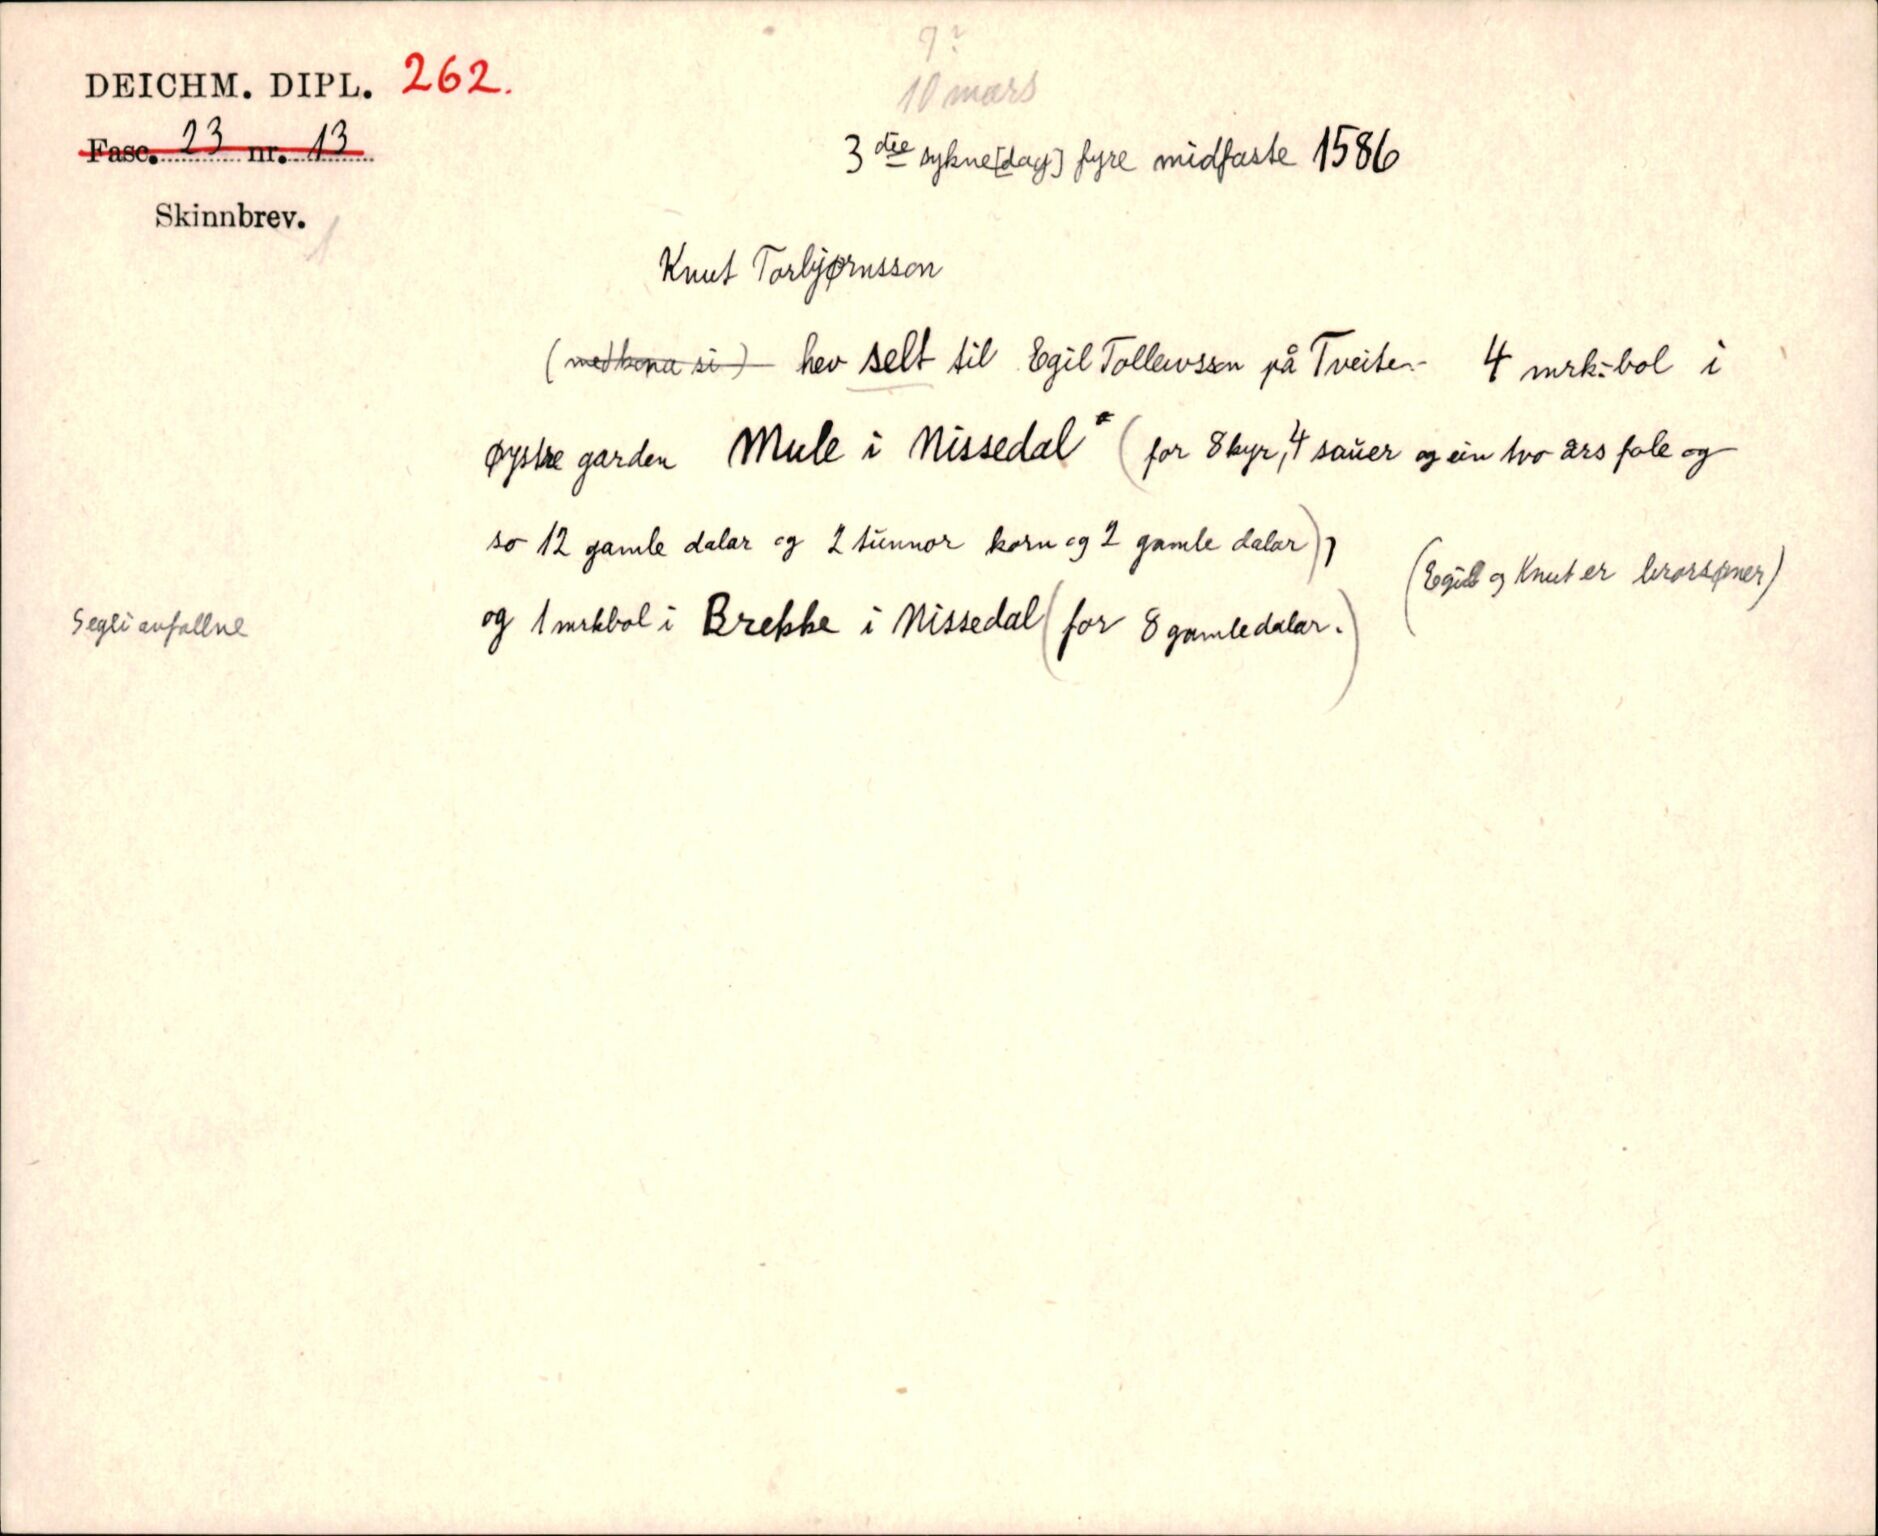 DEICHM. DIPL. 262.
Fasc. 23 nr. 13
Skinnbrev.
9?
10 mars
3die sykne[dag] fyre midfaste 1586
Knut Torbjørnsson
(med kona si) hev selt til Egil Tollevsson på Tveiten 4 mrk:bol i
øystre garden Mule i Nissedal (for 8 kyr, 4 sauer og ein tvo års fole og
so 12 gamle dalar og 2 tunnor korn og 2 gamle dalar),
(Egil og Knut er brorsøner)
og 1 mrkbol i Brekke i Nissedal (for 8 gamle dalar.)
Segli avfallne